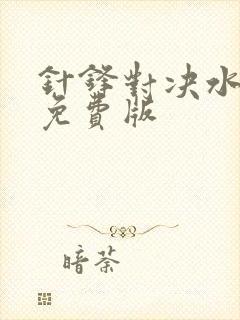 針鋒對决水
免費版
暗荼